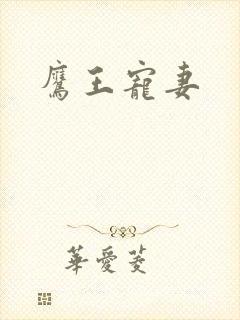 鷹王寵妻
華愛菱